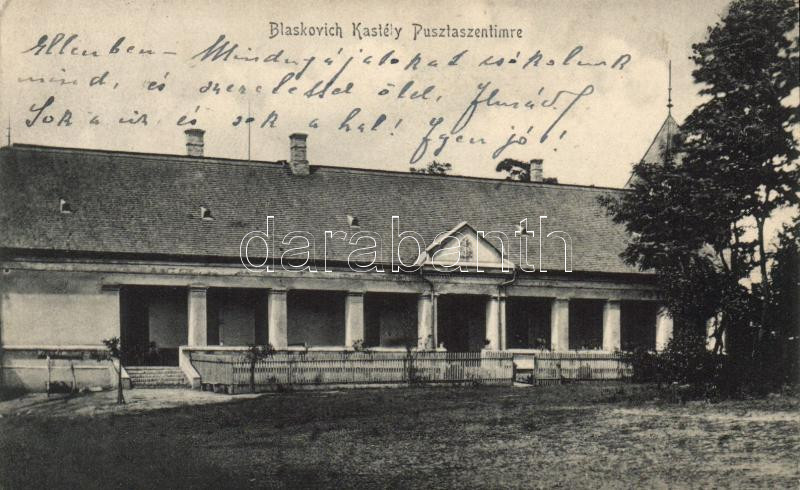 Blaskovich Kastély Pusztaszentimre
Ellenben – Mindnyájatokat csókolunk
mind, és szeretettel ölel,
Sok a és sok a hal! Igen jó!
darabanth